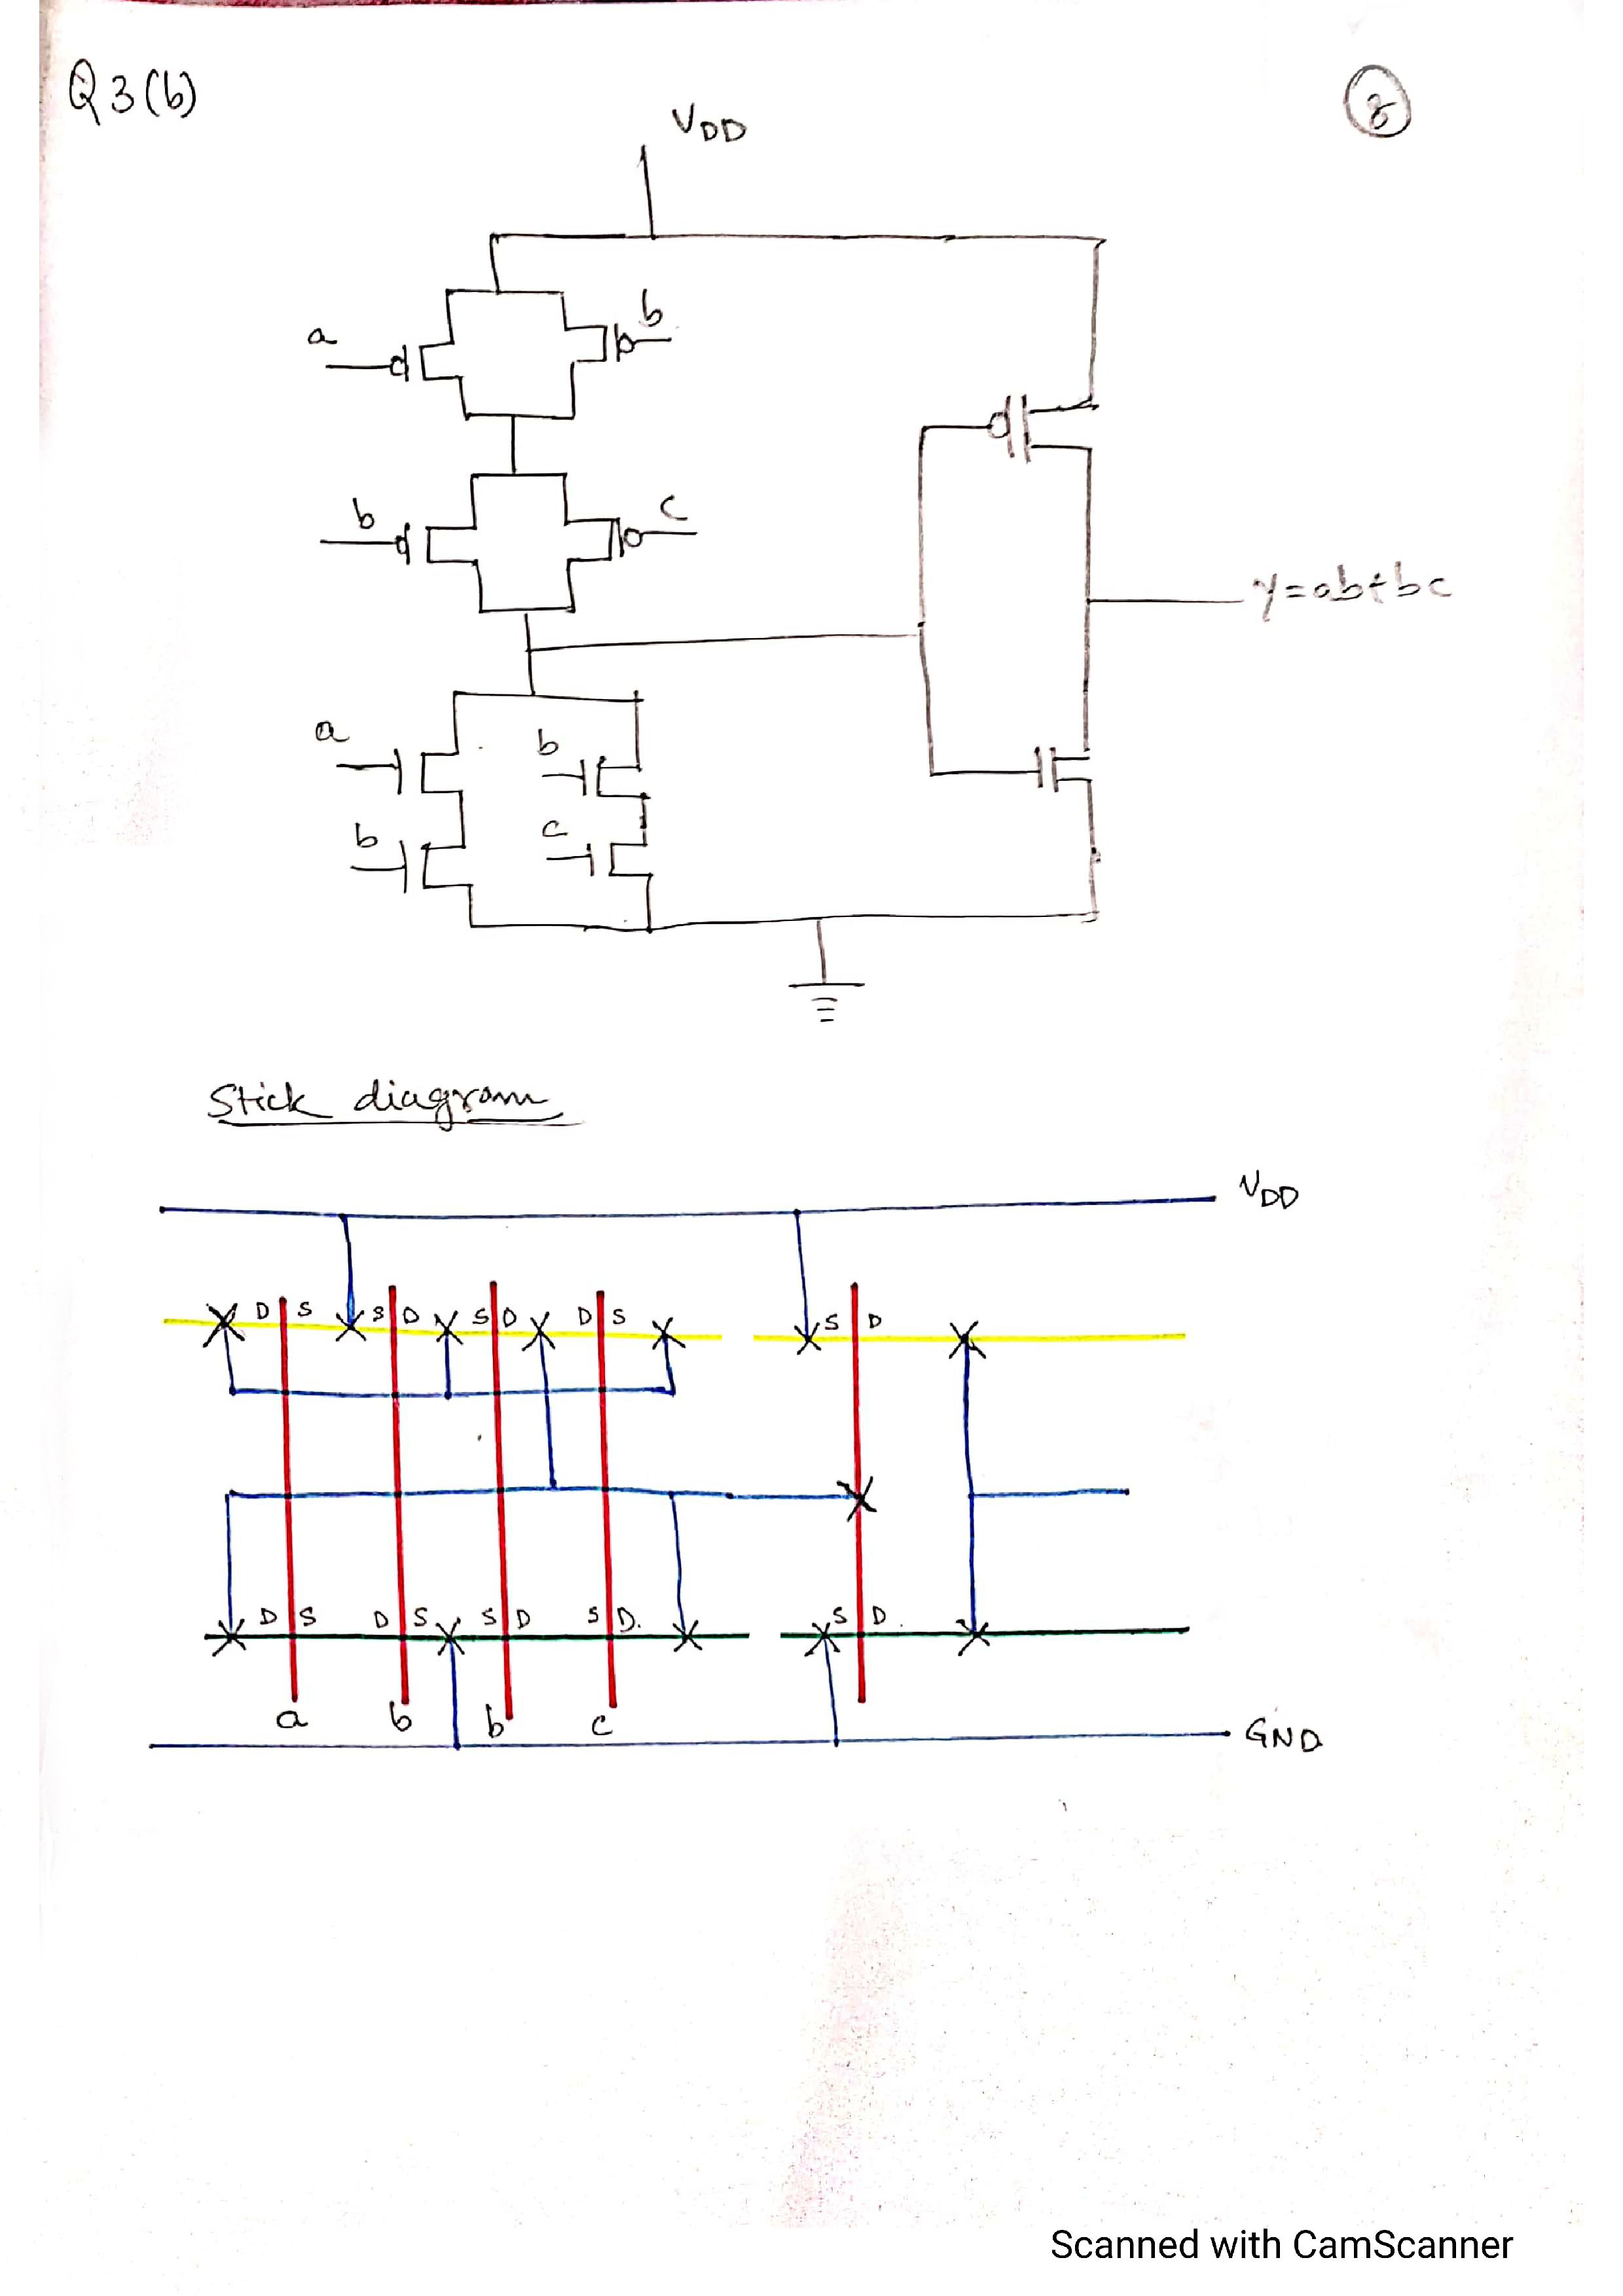 Q3(b)
8
VDD
a
b
b
c
y=ab+bc
a
b
b
c
Stick diagram
VDD
D S S D S D D S S D
D S D S S D S D. S D.
a b b c
GND
Scanned with CamScanner